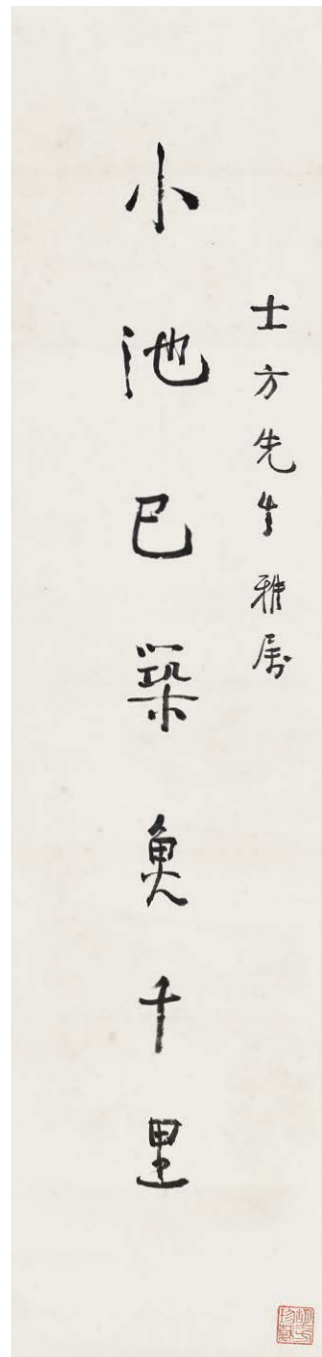 士方先生雅属
小池已築魚千里